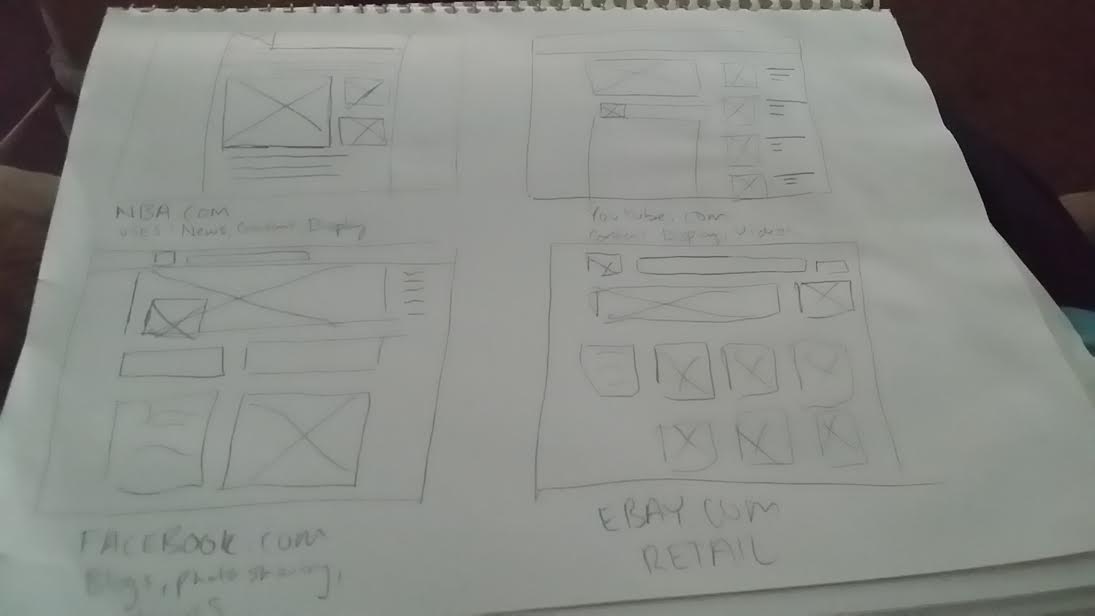 NBA.COM
USES: News, Content Display
Youtube.com
Content Display, Videos
FACEBOOK.COM
Blogs, photo sharing,
EBAY.COM
RETAIL